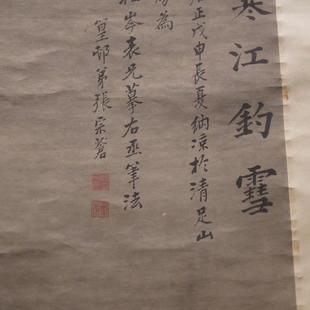 寒江釣雪
正戊申長夏納涼於清足山
為
岑表兄摹右丞筆法
篁邨弟張宗蒼